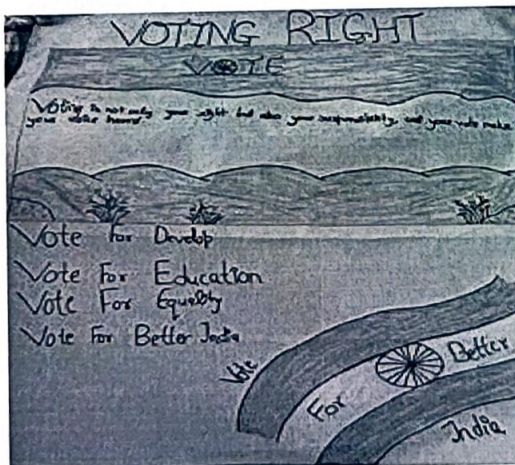 VOTING RIGHT
VOTE
Voting is not only your right but also your responsibility, cast your vote make
your voice heard
Vote For Develop
Vote For Education
Vote For Equality
Vote For Better India
Vote For Better India